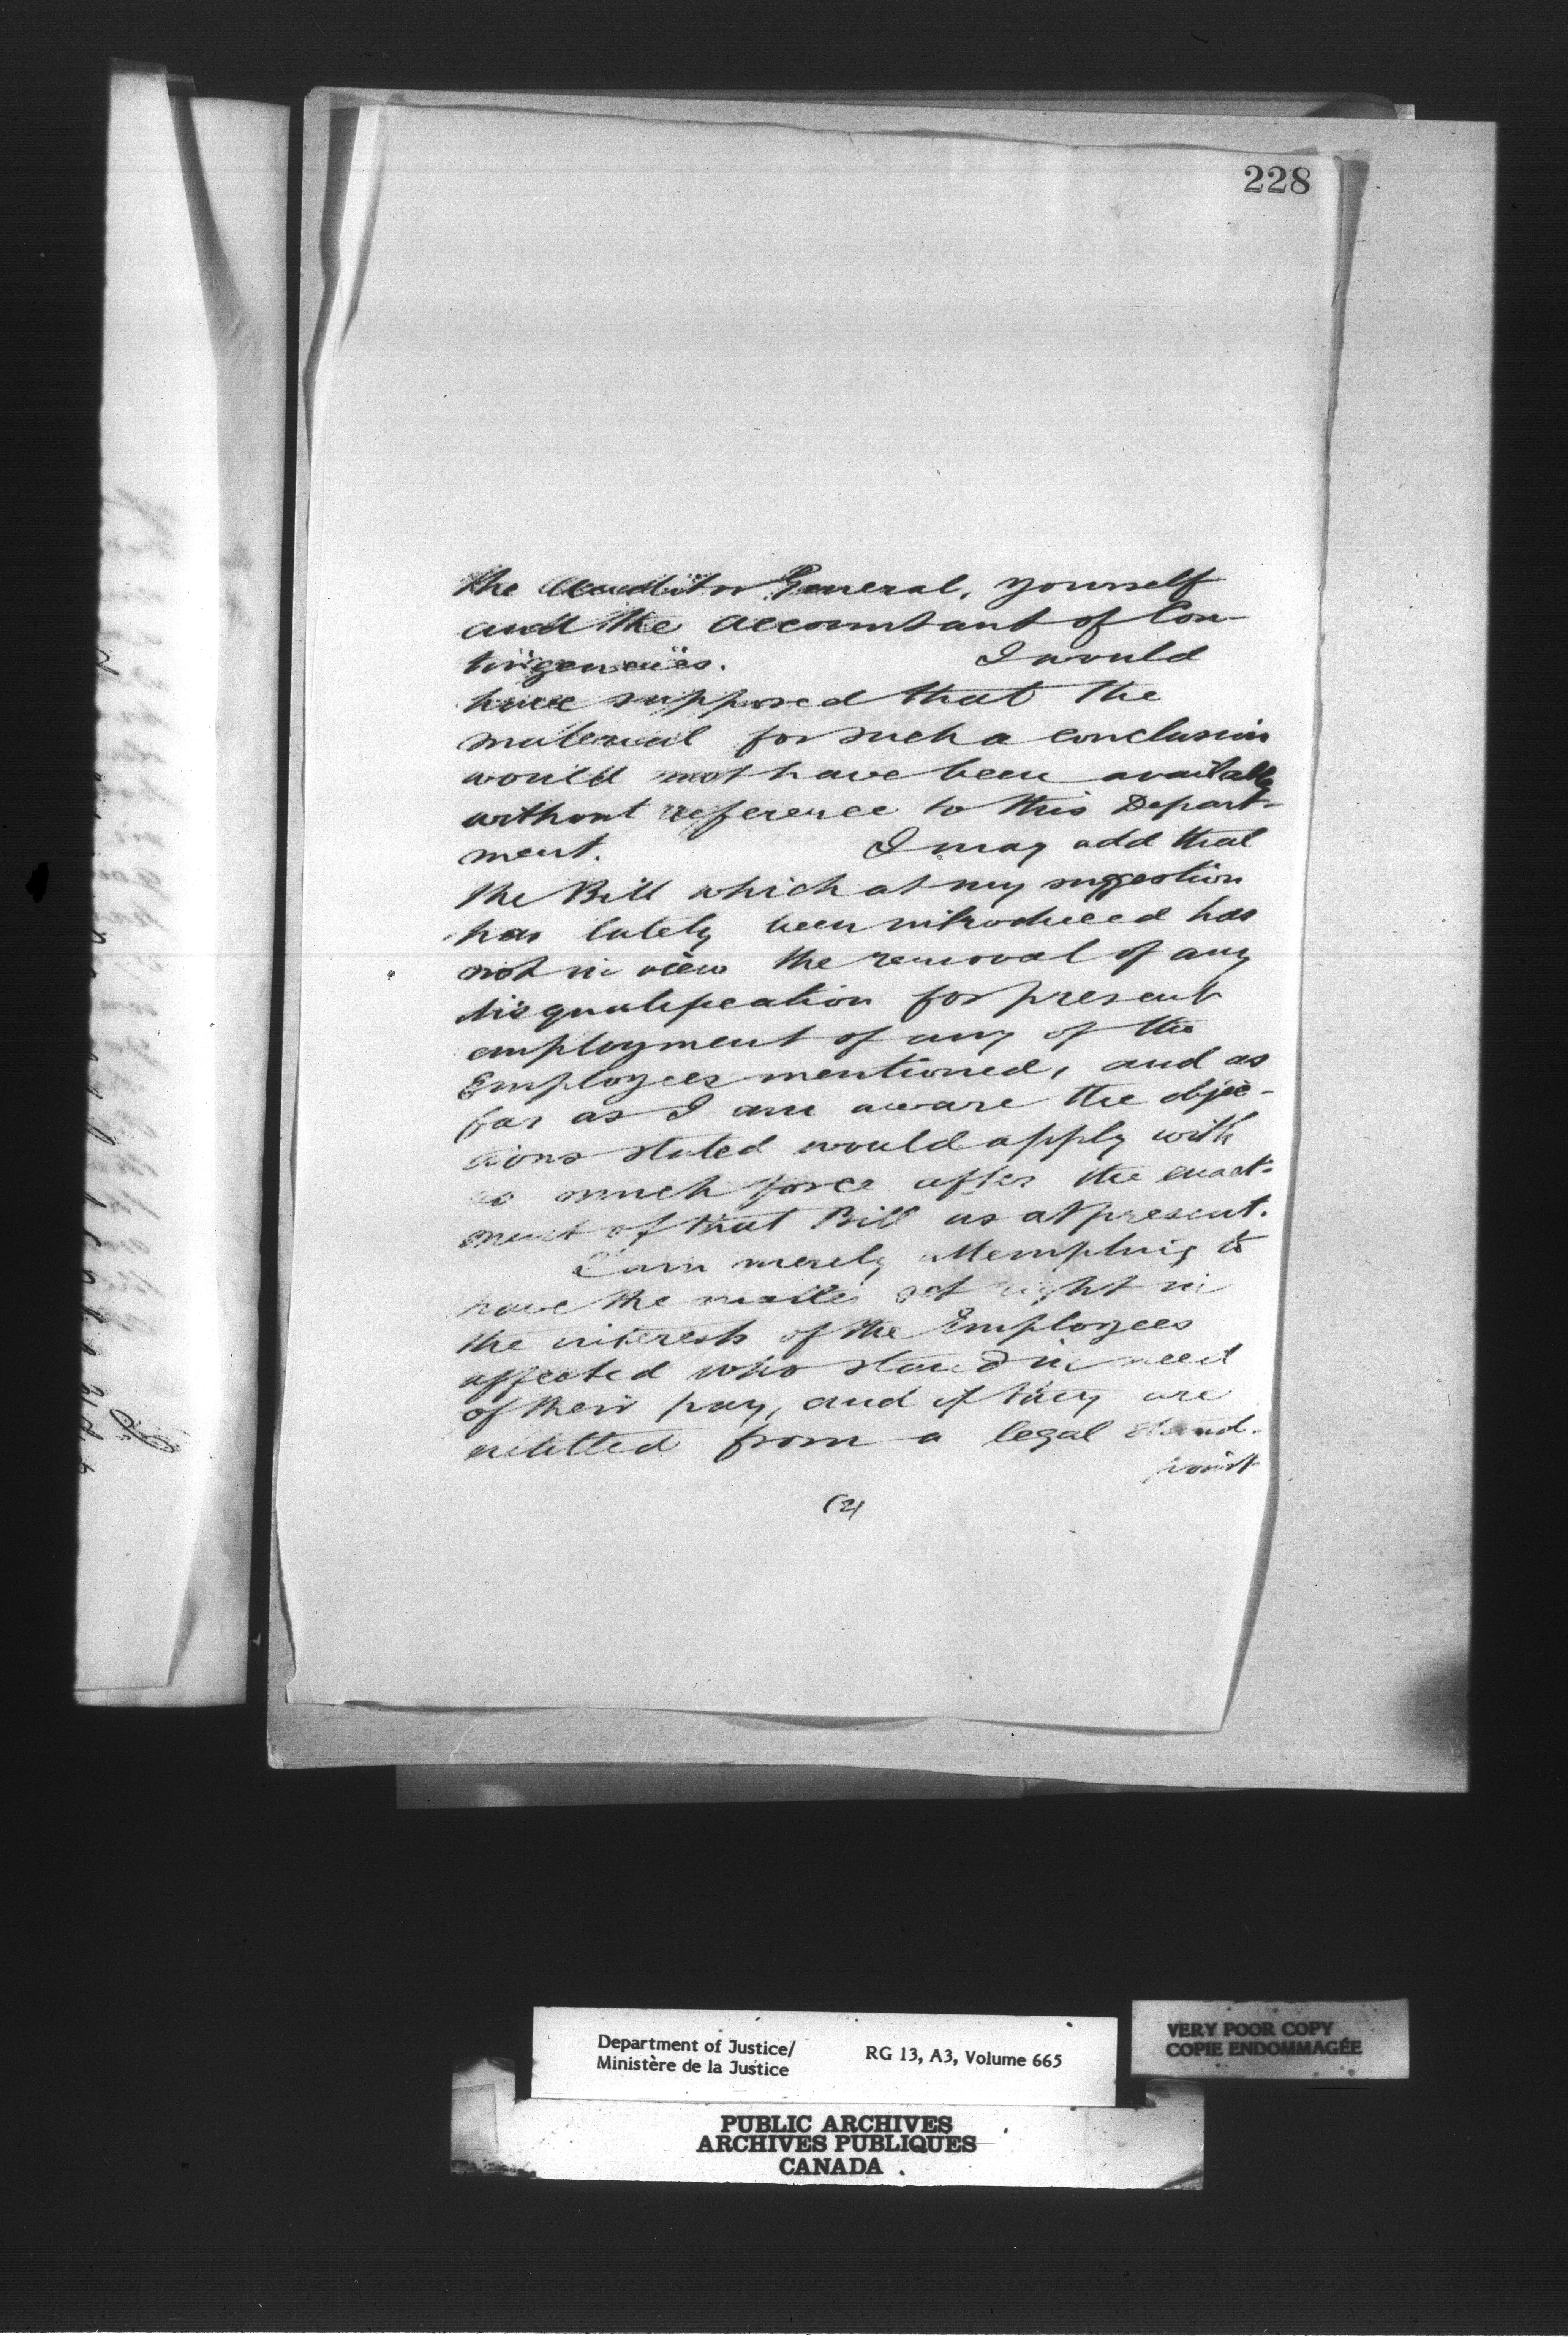 228
the Auditor General, yourself
and the Accountant of Con-
tingencies. I would
have supposed that the
material for such a conclusion
would not have been available
without reference to this Depart-
ment. I may add that
the Bill which at my suggestion
has lately been introduced has
not in view the removal of any
disqualification for present
employment of any of the
Employees mentioned, and as
far as I am aware the objec-
tions stated would apply with
as much force after the enact-
ment of that Bill as at present.
I am merely attempting to
have the matter set right in
the interests of the Employees
affected who stand in need
of their pay, and if they are
entitled from a legal stand-
point
(2)
Department of Justice/
Ministère de la Justice
RG 13, A3, Volume 665
VERY POOR COPY
COPIE ENDOMMAGÉE
PUBLIC ARCHIVES
ARCHIVES PUBLIQUES
CANADA